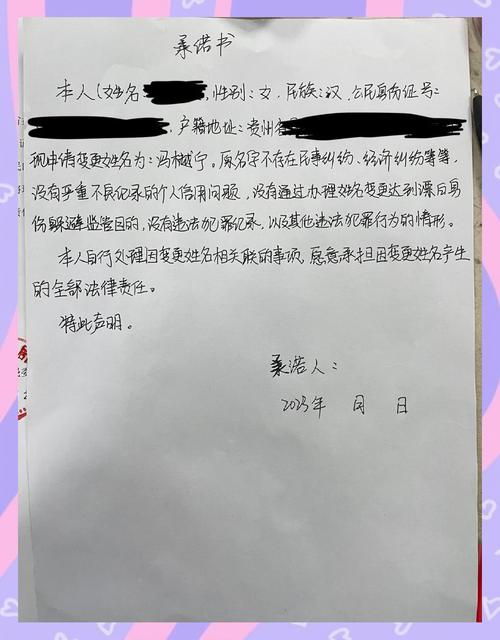 承诺书
本人(姓名 ,性别:女,民族:汉,公民身份证号:
,户籍地址:贵州省
现申请变更姓名为:冯樾宁。原名字不存在民事纠纷、经济纠纷等等,
没有严重不良记录的个人信用问题,没有通过办理姓名变更达到漂白身
份躲避监管目的,没有违法犯罪记录,以及其他违法犯罪行为的情形。
本人自行处理因变更姓名相关联的事项,愿意承担因变更姓名产生
的全部法律责任。
特此声明。
承诺人:
2025年 月 日